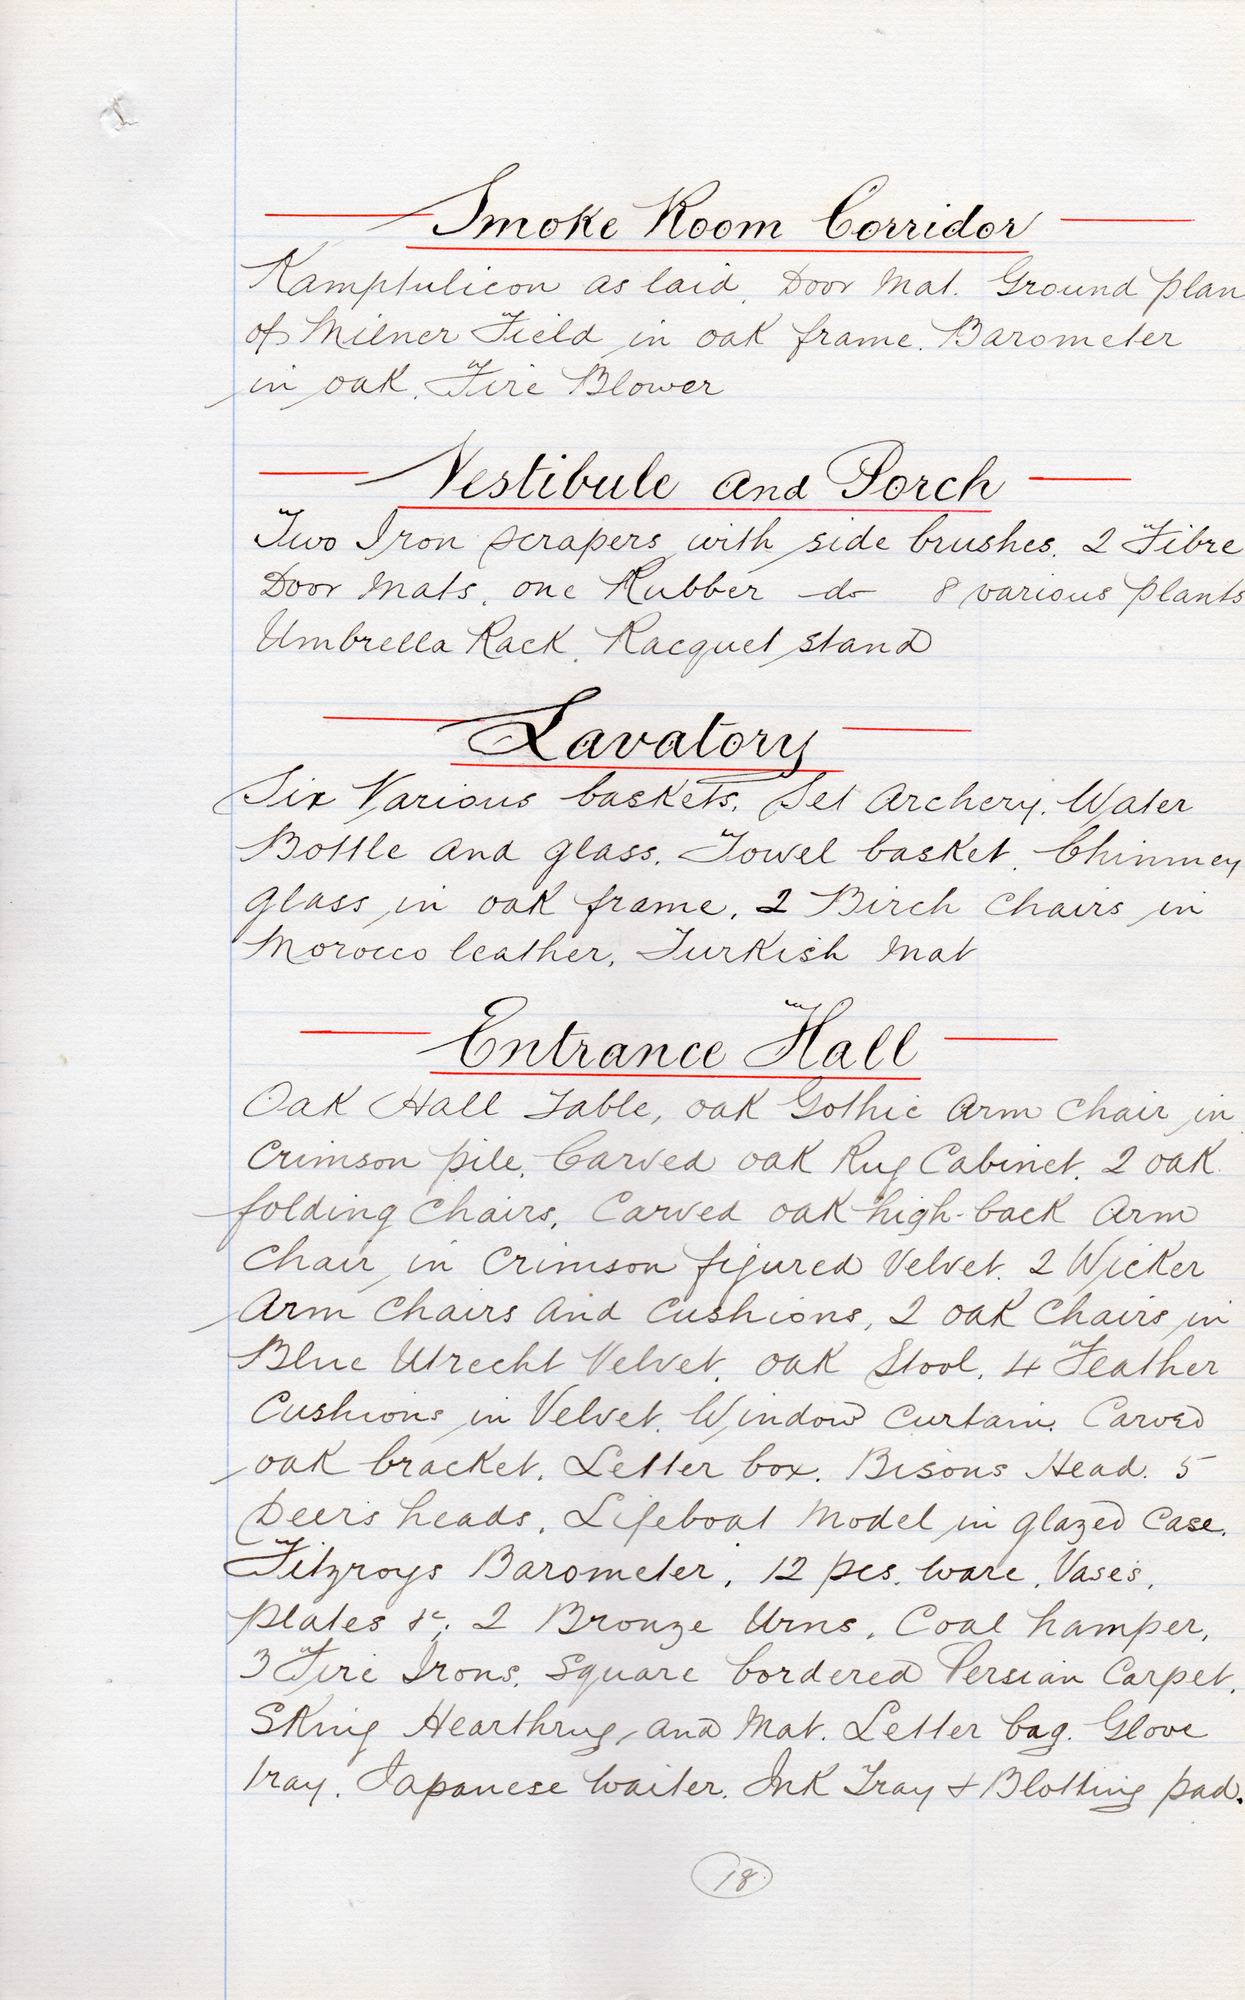 Smoke Room Corridor
Kamptulicon as laid, Door Mat. Ground plan
of Milner Field in oak frame. Barometer
in oak. Fire Blower
Vestibule and Porch
Two Iron scrapers with side brushes. 2 Fibre
Door Mats. one Rubber do 8 various plants
Umbrella Rack. Racquet stand
Lavatory
Six Various baskets. Set Archery. Water
Bottle and glass. Towel basket. Chimney
glass in oak frame. 2 Birch Chairs in
Morocco leather. Turkish Mat
Entrance Hall
Oak Hall Table, oak Gothic Arm Chair in
Crimson pile. Carved oak Rug Cabinet. 2 oak
folding Chairs. Carved oak high-back Arm
Chair in Crimson figured Velvet. 2 Wicker
Arm Chairs and Cushions, 2 oak Chairs in
Blue Utrecht Velvet. oak Stool. 4 Feather
Cushions in Velvet. Window Curtain. Carved
oak bracket. Letter box. Bisons Head. 5
Deers heads. Lifeboat Model in glazed Case.
Fitzroys Barometer. 12 pcs. ware. Vases.
plates &c. 2 Bronze Urns. Coal hamper.
3 Fire Irons. Square bordered Persian Carpet.
Sking Hearthrug and Mat. Letter bag. Glove
tray. Japanese waiter. Ink Tray & Blotting pad.
18